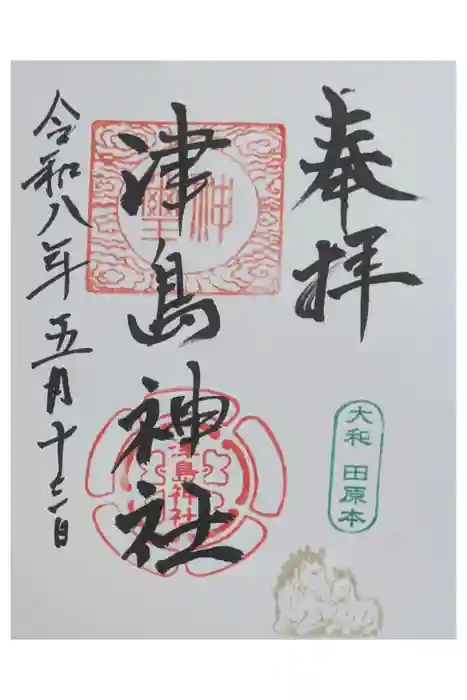 奉拝
大和 田原本
津島神社
津島神社
令和八年五月十三日